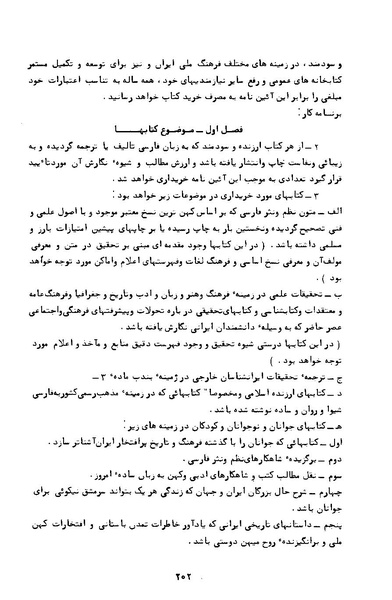 و سودمند، در زمینه های مختلف فرهنگ ملی ایران و نیز برای توسعه و تکمیل مستمر
کتابخانه های عمومی و رفع سایر نیازمندیهای خود، همه ساله به تناسب اعتبارات خود
مبلغی را برابر این آئین نامه به مصرف خرید کتاب خواهد رسانید.
برنامه کار:
فصل اول ــ موضوع کتابها
۲ ــ از هر کتاب ارزنده و سودمند که به زبان فارسی تألیف یا ترجمه گردیده و به
زیبائی ونفاست چاپ وانتشار یافته باشد و ارزش مطالب و شیوهٔ نگارش آن موردتاٴیید
قرار گیرد تعدادی به موجب این آئین نامه خریداری خواهد شد.
۳ ــ کتابهای مورد خریداری در موضوعات زیر خواهد بود:
الف ــ متون نظم ونثر فارسی که بر اساس کهن ترین نسخ معتبر موجود و با اصول علمی و
فنی تصحیح گردیده ونخستین بار به چاپ رسیده یا بر چاپهای پیشین امتیازات بارز و
مسلمی داشته باشد. ( در این کتابها وجود مقدمه ای مبنی بر تحقیق در متن و معرفی
مولف‌آن و معرفی نسخ اساسی و فرهنگ لغات وفهرستهای اعلام واماکن مورد توجه خواهد
بود )
ب ــ تحقیقات علمی در زمینهٔ فرهنگ وهنر و زبان و ادب وتاریخ و جغرافیا وفرهنگ‌عامه
و معتقدات وکتابشناسی و کتابهای‌تحقیقی در باره تحولات وپیشرفتهای فرهنگی‌واجتماعی
عصر حاضر که به وسیلهٔ دانشمندان ایرانی نگارش یافته باشد.
( در این کتابها درستی شیوه تحقیق و وجود فهرست دقیق منابع و مآخذ و اعلام مورد
توجه خواهد بود. )
ج ــ ترجمهٔ تحقیقات ایرانشناسان خارجی در زمینهٔ بندب مادهٔ ۳ ــ
د ــ کتابهای ارزنده اسلامی ومخصوصا" کتابهائی که در زمینهٔ مذهب‌رسمی‌کشوربه‌فارسی
شیوا و روان و ساده نوشته شده باشد.
هـ ــ کتابهای جوانان و نوجوانان و کودکان در زمینه های زیر:
اول ــ کتابهائی که جوانان را با گذشته فرهنگ و تاریخ پرافتخار ایران‌آشناتر سازد.
دوم ــ برگزیدهٔ شاهکارهای‌نظم ونثر فارسی.
سوم ــ نقل مطالب کتب و شاهکارهای ادبی وکهن به زبان سادهٔ امروز.
چهارم ــ شرح حال بزرگان ایران و جهان که زندگی هر یک بتواند سرمشق نیکوئی برای
جوانان باشد.
پنجم ــ داستانهای تاریخی ایرانی که یادآور خاطرات تمدن باستانی و افتخارات کهن
ملی و برانگیزندهٔ روح میهن دوستی باشد.
۲۰۲